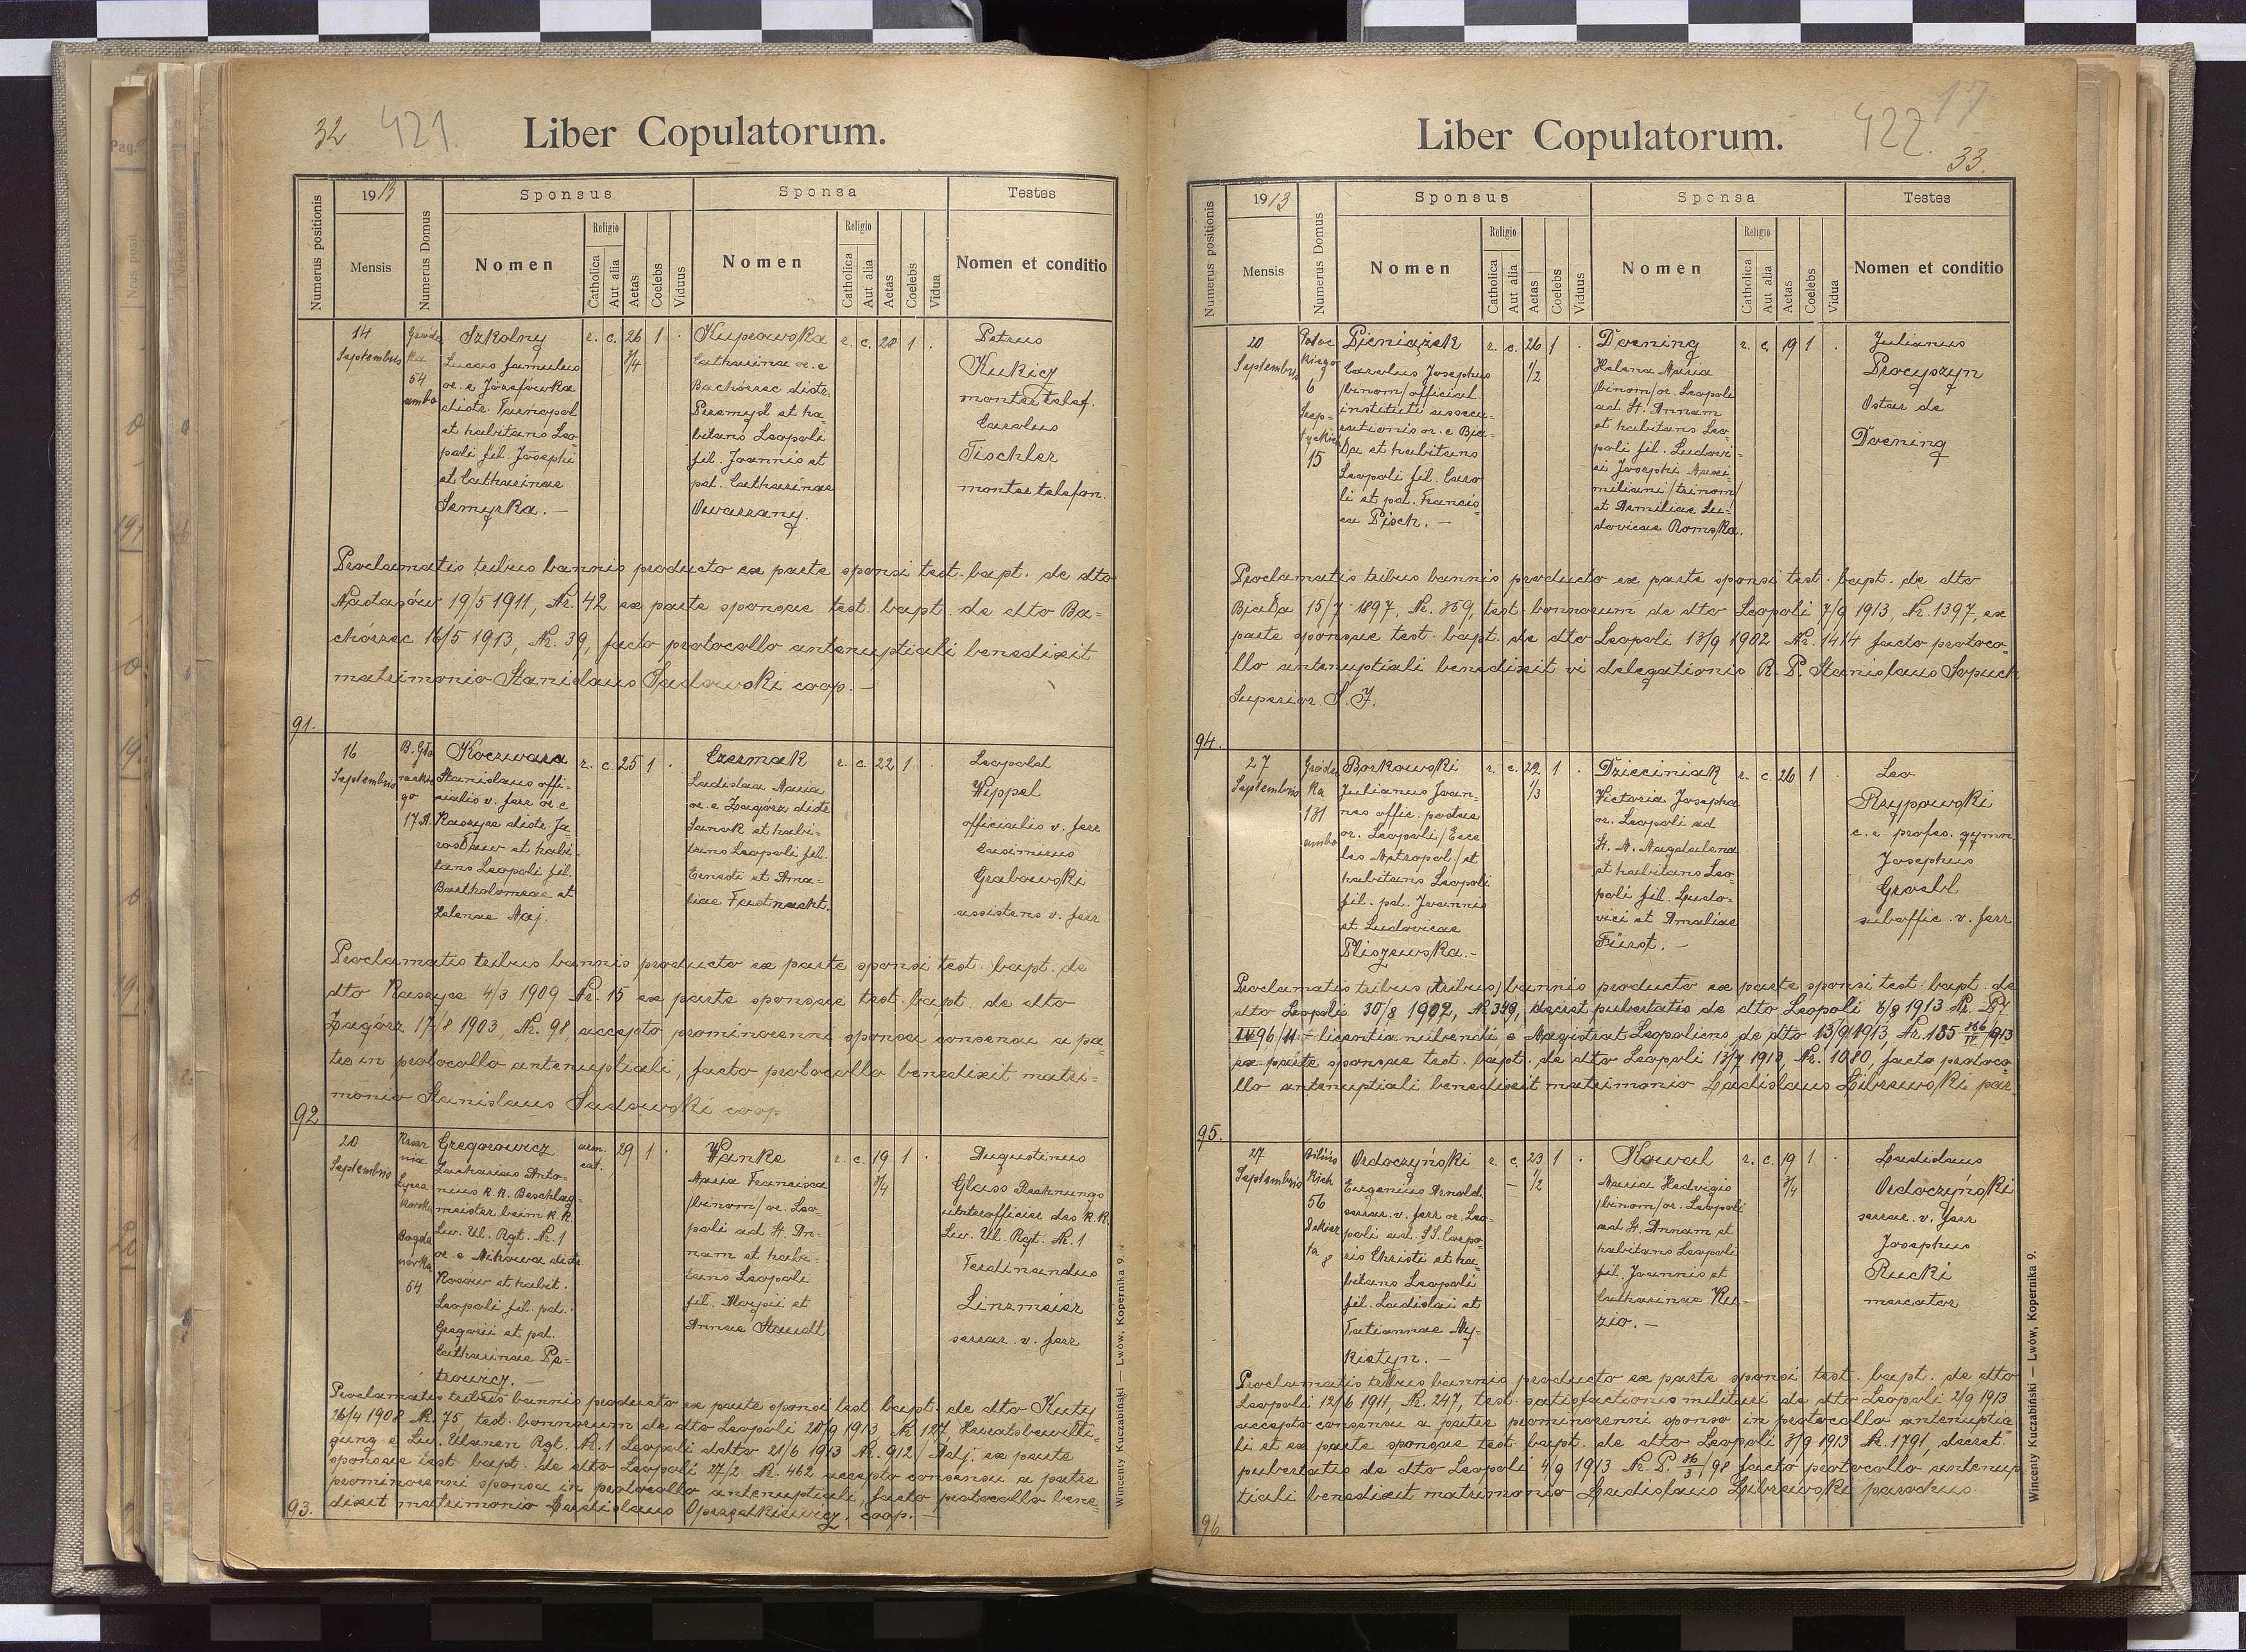 32 421.
Liber Copulatorum.
Numerus positionis
1913
Mensis
Numerus Domus
Sponsus
Nomen
Religio
Catholica
Aut alia
Aetas
Coelebs
Viduus
Sponsa
Nomen
Religio
Catholica
Aut alia
Aetas
Coelebs
Vidua
Testes
Nomen et conditio
91.
14
Septembris
Gróde
cka
54
ambo
Szkolny
Lucas famulus
or. e Józefówka
distr. Tarnopol
et habitans Leo-
poli fil. Josephi
et Catharinae
Semyrka. —
r. c. 26 3/4 1 .
Kuprowska
Catharina or. e
Bachórzec distr.
Przemysl et ha
bitans Leopoli
fil. Joannis et
pd. Catharinae
Owarzany.
r. c. 28 1 .
Petrus
Kukicz
monter telef.
Carolus
Tischler
monter telefon.
Proclamatis tribus bannis producto ex parte sponsi test. bapt. de dto
Nastasów 19/5 1911, Nr. 42 ex parte sponsae test. bapt. de dto Ba-
chórzec 16/5 1913, Nr. 39, facto protocollo antenuptiali benedixit
matrimonio Stanislaus Sadowski coop. —
92
16
Septembris
B. Gło
wackie
go
17 A.
Koczwara
Stanislaus offi-
cialis v. ferr or. e
Kaszyce distr. Ja
rosław et habi
tans Leopoli fil.
Bartholomeae et
Helenae Maj.
r. c. 25 1 .
Czermak
Ladislaa Maria
or. e Zagórz distr
Sanok et habi-
tans Leopoli fil.
Ernesti et Ama-
liae Fastnacht.
r. c. 22 1 .
Leopold
Wippel
officialis v. ferr
Casimirus
Grabowski
assistens v. ferr
Proclamatis tribus bannis producto ex parte sponsi test. bapt. de
dto Kaszyce 4/3 1909 Nr. 15 ex parte sponsae test. bapt. de dto
Zagórz 17/8 1903, Nr. 98, accepto prominorenni sponsa consensu a pa-
tre in protocollo antenuptiali, facto protocollo benedixit matri-
monio Stanislaus Sadowski coop.
93.
20
Septembris
Kasar
nia
Łycza
kowska
Bogda
nówka
54
Gregorowicz
Zacharias Anto-
nius k. k. Beschlag-
meister beim k. k.
Lw. Ul. Rgt. Nr. 1
or. e Mikowa distr
Kosów et habit.
Leopoli fil. pd.
Gregorii et pd.
Catharinae Pe-
trowicz. —
arm. cat. 29 1 .
Wanke
Maria Francisca
/binom/ or. Leo-
poli ad St. An-
nam et habi-
tans Leopoli
fil. Aloysii et
Annae Staudt
r. c. 19 3/4 1 .
Augustinus
Glass Rechnungs
unterofficier des k. k.
Lw. Ul. Rgt. Nr. 1
Ferdinandus
Linzmeier
serrar. v. ferr
Proclamatis tribus bannis producto ex parte sponsi test. bapt. de dto Kuty
26/4 1908 Nr. 75 test. bannorum de dto Leopoli 20/9 1913 Nr. 127, Heiratsbewilli-
gung e Lw. Ulanen Rgt. Nr. 1 Leopoli ddto 21/6 1913 Nr. 912/Adj. ex parte
sponsae test. bapt. de dto Leopoli 27/2 Nr. 462 accepto consensu a patre
prominorenni sponsa in protocollo antenuptiali, facto protocollo bene-
dixit matrimonio Ladislaus Oprządkiewicz. coop. —
Wincenty Kuczabiński — Lwów, Kopernika 9.
422. 17
33.
Liber Copulatorum.
Numerus positionis
1913
Mensis
Numerus Domus
Sponsus
Nomen
Religio
Catholica
Aut alia
Aetas
Coelebs
Viduus
Sponsa
Nomen
Religio
Catholica
Aut alia
Aetas
Coelebs
Vidua
Testes
Nomen et conditio
94.
20
Septembris
Potoc
kiego
6
Szep-
tyckich
15
Pieniążek
Carolus Josephus
/binom/ official
instituti assecu-
rationis or. e Bia-
ła et habitans
Leopoli fil. Caro
li et pd. Francis-
ca Pisch. —
r. c. 26 1/2 1 .
Doening
Helena Maria
/binom/ or. Leopoli
ad St. Annam
et habitans Leo-
poli fil. Ludovi-
ci Josephi Maxi-
miliani /trinom/
et Aemiliae Lu-
dovicae Romska.
r. c. 19 1 .
Julianus
Procyszyn
Oskar de
Doening
Proclamatis tribus bannis producto ex parte sponsi test. bapt. de dto
Biała 15/7 1897, Nr. 359, test. bannorum de dto Leopoli 7/9 1913, Nr. 1397, ex
parte sponsae test. bapt. de dto Leopoli 13/9 1902 Nr. 1414 facto protoco-
llo antenuptiali benedixit vi delegationis R. P. Stanislaus Sopuch
Superior. S. J.
95.
27
Septembris
Gróde
cka
131
ambo
Borkowski
Julianus Joan-
nes offic. postae
or. Leopoli /Ecc
les Metropol./ et
habitans Leopoli
fil. pd. Joannis
et Ludovicae
Pliszewska. —
r. c. 22 1/3 1 .
Dzieciniak
Victoria Josepha
or. Leopoli ad
St. M. Magdalena
et habitans Leo-
poli fil. Ludo-
vici et Amaliae
Fürst. —
r. c. 26 1 .
Leo
Rzypowski
c. r. profes. gymn
Josephus
Grashl
suboffic. v. ferr
Proclamatis tribus (tribus) bannis producto ex parte sponsi test. bapt. de
dto Leopoli 30/8 1902, Nr. 349, decret pubertatis de dto Leopoli 8/8 1913 Nr. P I
IV 96/11 licentia nubendi e Magistrat Leopoliens, de dto 13/9 1913, Nr. 135
ex parte sponsae test. bapt. de dto Leopoli 13/7 1913, Nr. 1080, facto protoco-
llo antenuptiali benedixit matrimonio Ladislaus Librewski par.
96
27
Septembris
Bilińs
kich
56
Dekier
ta 8
Ordoczyński
Eugenius Arnold.
serrar. v. ferr or. Leo-
poli ad. SS. Corpo-
ris Christi et ha-
bitans Leopoli
fil. Ladislai et
Tatiannae My-
kietyn. —
r. c. 23 1/2 1 .
Kowal
Maria Hedvigis
/binom/ or. Leopoli
ad St. Annam et
habitans Leopoli
fil. Joannis et
Catharinae Ku-
zio. —
r. c. 19 3/4 1 .
Ladislaus
Ordoczyński
serrar. v. ferr
Josephus
Rucki
mercator
Proclamatis tribus bannis producto ex parte sponsi test. bapt. de dto
Leopoli 12/6 1911, Nr. 247, test. satisfactionis militari de dto Leopoli 2/9 1913
accepto consensu a patre prominorenni sponso in protocollo antenuptia
li et ex parte sponsae test. bapt. de dto Leopoli 3/9 1913 Nr. 1791, decret
pubertatis de dto Leopoli 4/9 1913 Nr. P. 36/3/98 facto protocollo antenup
tiali benedixit matrimonio Ladislaus Librewski parochus.
Wincenty Kuczabiński — Lwów, Kopernika 9.